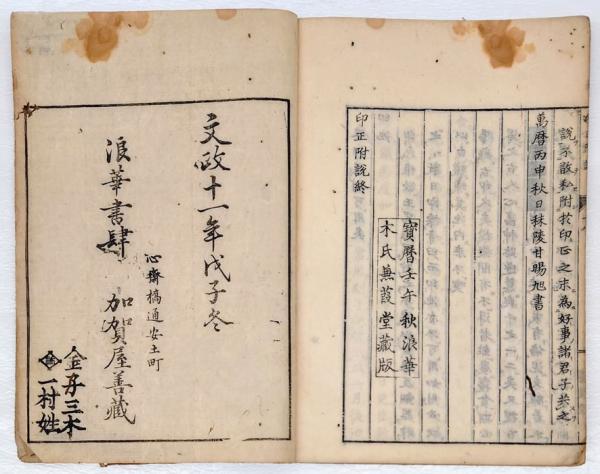 說不敢私附於印正之末為好事諸君子共之
萬曆丙申秋日秣陵甘暘旭書
寶曆壬午秋浪華
木氏蒹葭堂藏版
印正附說終
文政十一年戊子冬
心齋橋通安土町
浪華書肆 加賀屋善藏
三木
一村姓